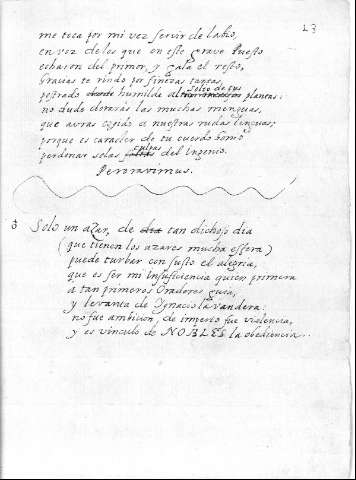 23
me toca por mi vez servir de labio,
en vez de los que en este grave Puesto
echaron del primor, y gala el resto,
Gracias te rindo por finezas tantas,
postrado humilde al solio de tus plantas:
no dudo doraràs las muchas menguas,
que avras cogido a nuestras rudas lenguas;
porque es caracter de tu cuerdo Genio
perdonar solas culpas del Ingenio.
Peroravimus.
Solo un azar, de tan dichoso dia
(que tienen los azares mucha esfera)
puede turbar con susto el alegria,
que es ser mi insuficiencia quien primera
a tan primeros Oradores guia,
y levanta de Ygnacio la vandera:
no fue ambicion, de imperio fue violencia,
y es vinculo de NOBLES la obediencia.